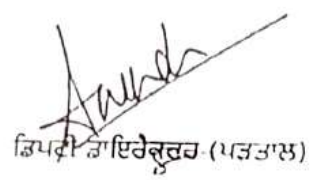 ਡਿਪਟੀ ਡਾਇਰੈਕਟਰ (ਪੜਤਾਲ)